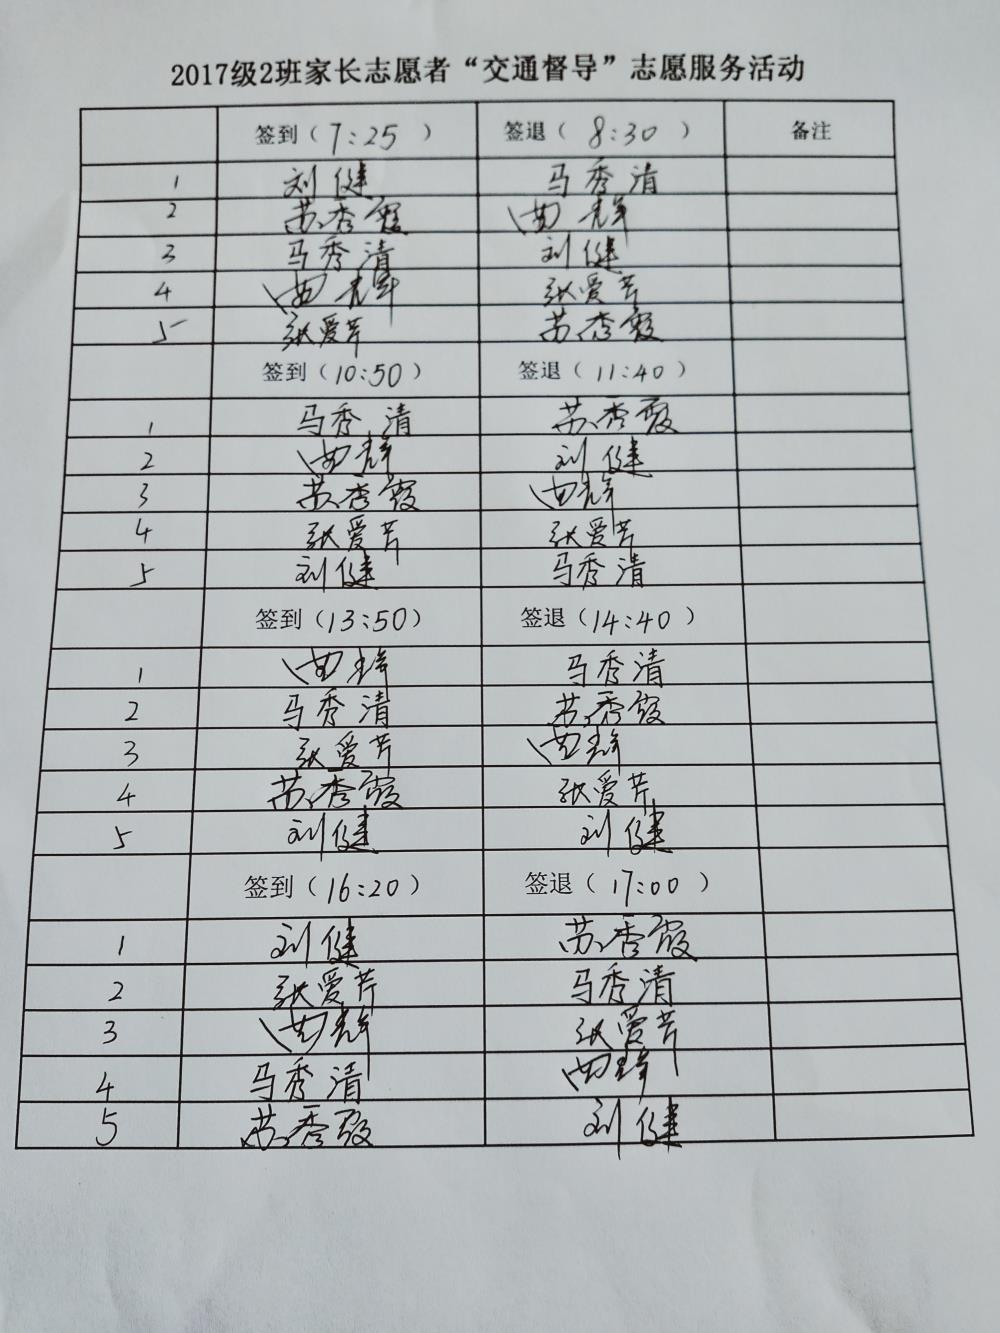 2017级2班家长志愿者“交通督导”志愿服务活动
签到（7:25） 签退（8:30） 备注
1 刘健 马秀清
2 苏秀霞 曲辉
3 马秀清 刘健
4 曲辉 张爱芹
5 张爱芹 苏秀霞
签到（10:50） 签退（11:40）
1 马秀清 苏秀霞
2 曲辉 刘健
3 苏秀霞 曲辉
4 张爱芹 张爱芹
5 刘健 马秀清
签到（13:50） 签退（14:40）
1 曲辉 马秀清
2 马秀清 苏秀霞
3 张爱芹 曲辉
4 苏秀霞 张爱芹
5 刘健 刘健
签到（16:20） 签退（17:00）
1 刘健 苏秀霞
2 张爱芹 马秀清
3 曲辉 张爱芹
4 马秀清 曲辉
5 苏秀霞 刘健